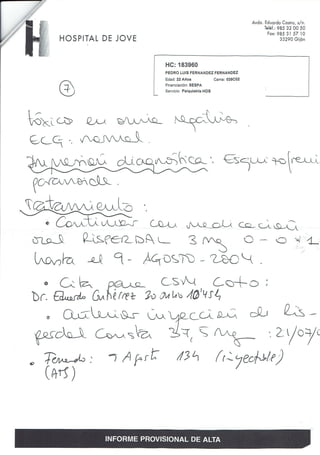 HOSPITAL DE JOVE
Avda. Eduardo Castro, s/n.
Telf.: 985 32 00 50
Fax: 985 31 57 10
33290 Gijón
HC: 183960
PEDRO LUIS FERNANDEZ FERNANDEZ
Edad: 22 Años Cama: 028C02
Financiación: SESPA
Servicio: Psiquiatría HOS
7
tóxico en orina negativos.
ECG: normal.
Impresión diagnóstica: Esquizofreni
paranoide.
Tratamiento:
• Continuar con medicación
oral RISPERDAL 3 mg 0-0-1
hasta el 9-AGOSTO-2004.
• Cita para CSM COTO:
Dr. Eduardo Gutiérrez 30 Julio
• anterior inyección de Ris-
perdal Consta 37,5 mg: 21/07/0
• : 7 Agosto 13h (inyectable)
(ATS)
INFORME PROVISIONAL DE ALTA